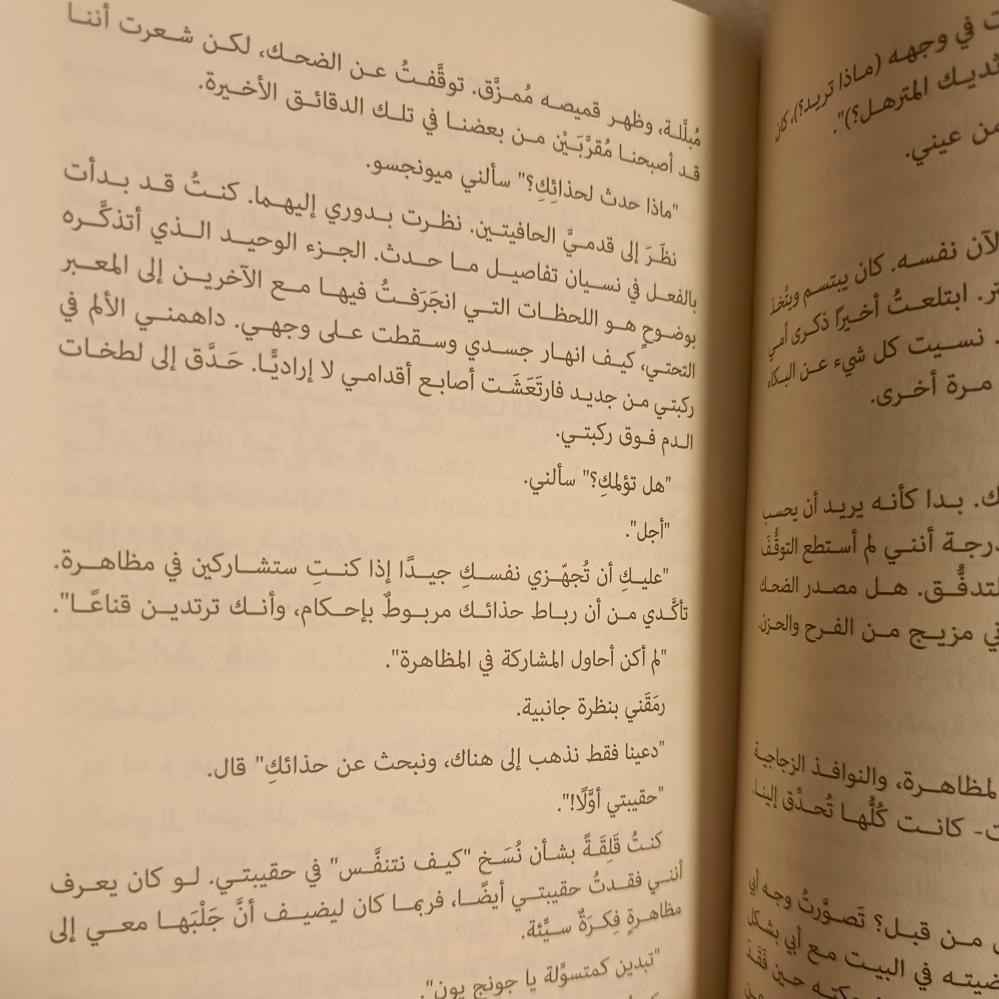 مُبلَّلة، وظهر قميصه مُمزَّق. توقَّفتُ عن الضحك، لكن شعرت أننا
قد أصبحنا مُقرَّبَيْن من بعضنا في تلك الدقائق الأخيرة.
"ماذا حدث لحذائِكِ؟" سألني ميونجسو.
نظَرَ إلى قدميَّ الحافيتين. نظرت بدوري إليهما. كنتُ قد بدأت
بالفعل في نسيان تفاصيل ما حدث. الجزء الوحيد الذي أتذكَّره
بوضوحٍ هو اللحظات التي انجَرَفتُ فيها مع الآخرين إلى المعبر
التحتي، كيف انهار جسدي وسقطت على وجهي. داهمني الألم في
ركبتي من جديد فارتَعَشَت أصابع أقدامي لا إراديًّا. حَدَّق إلى لطخات
الدم فوق ركبتي.
"هل تؤلمكِ؟" سألني.
"أجل".
"عليكِ أن تُجهّزي نفسكِ جيدًا إذا كنتِ ستشاركين في مظاهرة.
تأكَّدي من أن رباط حذائك مربوطٌ بإحكام، وأنك ترتدين قناعًا".
"لم أكن أحاول المشاركة في المظاهرة".
رمَقَني بنظرة جانبية.
"دعينا فقط نذهب إلى هناك، ونبحث عن حذائكِ" قال.
"حقيبتي أوَّلًا!".
كنتُ قَلِقَةً بشأن نُسَخ "كيف نتنفَّس" في حقيبتي. لو كان يعرف
أنني فقدتُ حقيبتي أيضًا، فربما كان ليضيف أنَّ جَلْبَها معي إلى
مظاهرةٍ فِكرَةٌ سيِّئة.
"تبدين كمتسوِّلة يا جونج يون".
في وجهه (ماذا تريد؟)، كان
ثديك المترهل؟)".
من عيني.
الآن نفسه. كان يبتسم ويتَّخذ
ابتلعتُ أخيرًا ذكرى أمي
نسيت كل شيء عن البكاء
مرة أخرى.
بدا كأنه يريد أن يحسب
أنني لم أستطع التوقُّفَ
هل مصدر الضحك
مزيج من الفرح والحزن.
والنوافذ الزجاجية
كانت كُلُّها تُحدِّق إلينا.
من قبل؟ تَصوَّرتُ وجه أبي
في البيت مع أبي بشكل
حين فَقَدَ